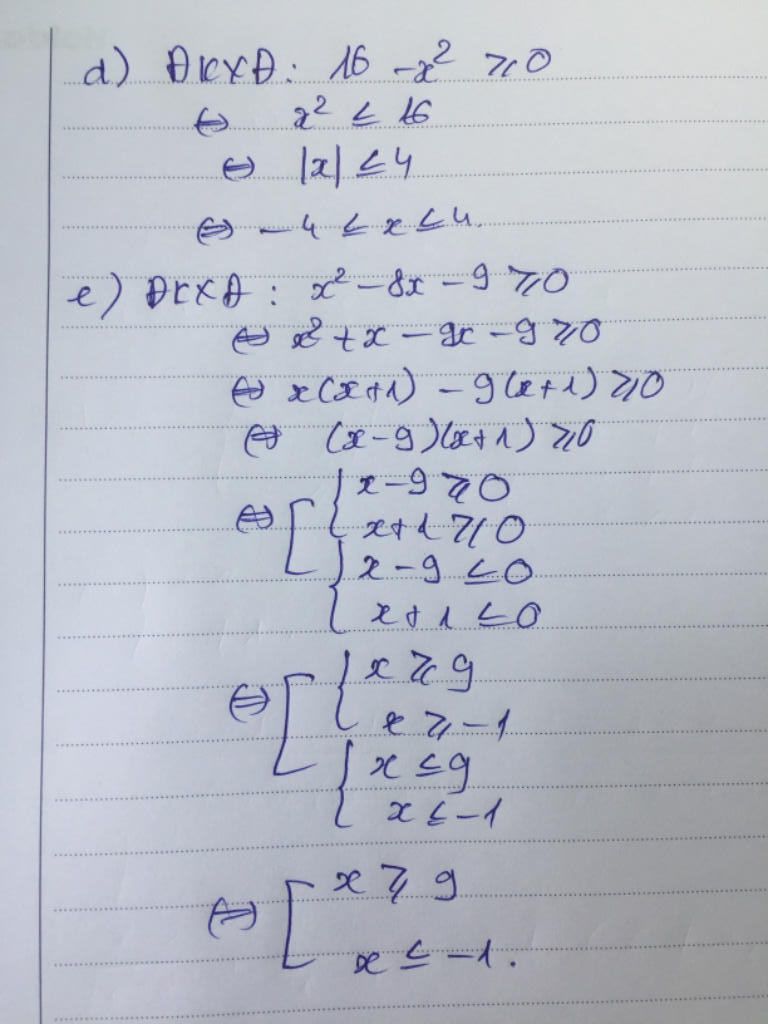 d) ĐKXĐ: 16 - x² ≥ 0
⇔ x² ≤ 16
⇔ |x| ≤ 4
⇔ -4 ≤ x ≤ 4.
e) ĐKXĐ: x² - 8x - 9 ≥ 0
⇔ x² + x - 9x - 9 ≥ 0
⇔ x(x+1) - 9(x+1) ≥ 0
⇔ (x-9)(x+1) ≥ 0
⇔ [ { x - 9 ≥ 0
x + 1 ≥ 0
{ x - 9 ≤ 0
x + 1 ≤ 0
⇔ [ { x ≥ 9
x ≥ -1
{ x ≤ 9
x ≤ -1
⇔ [ x ≥ 9
x ≤ -1.